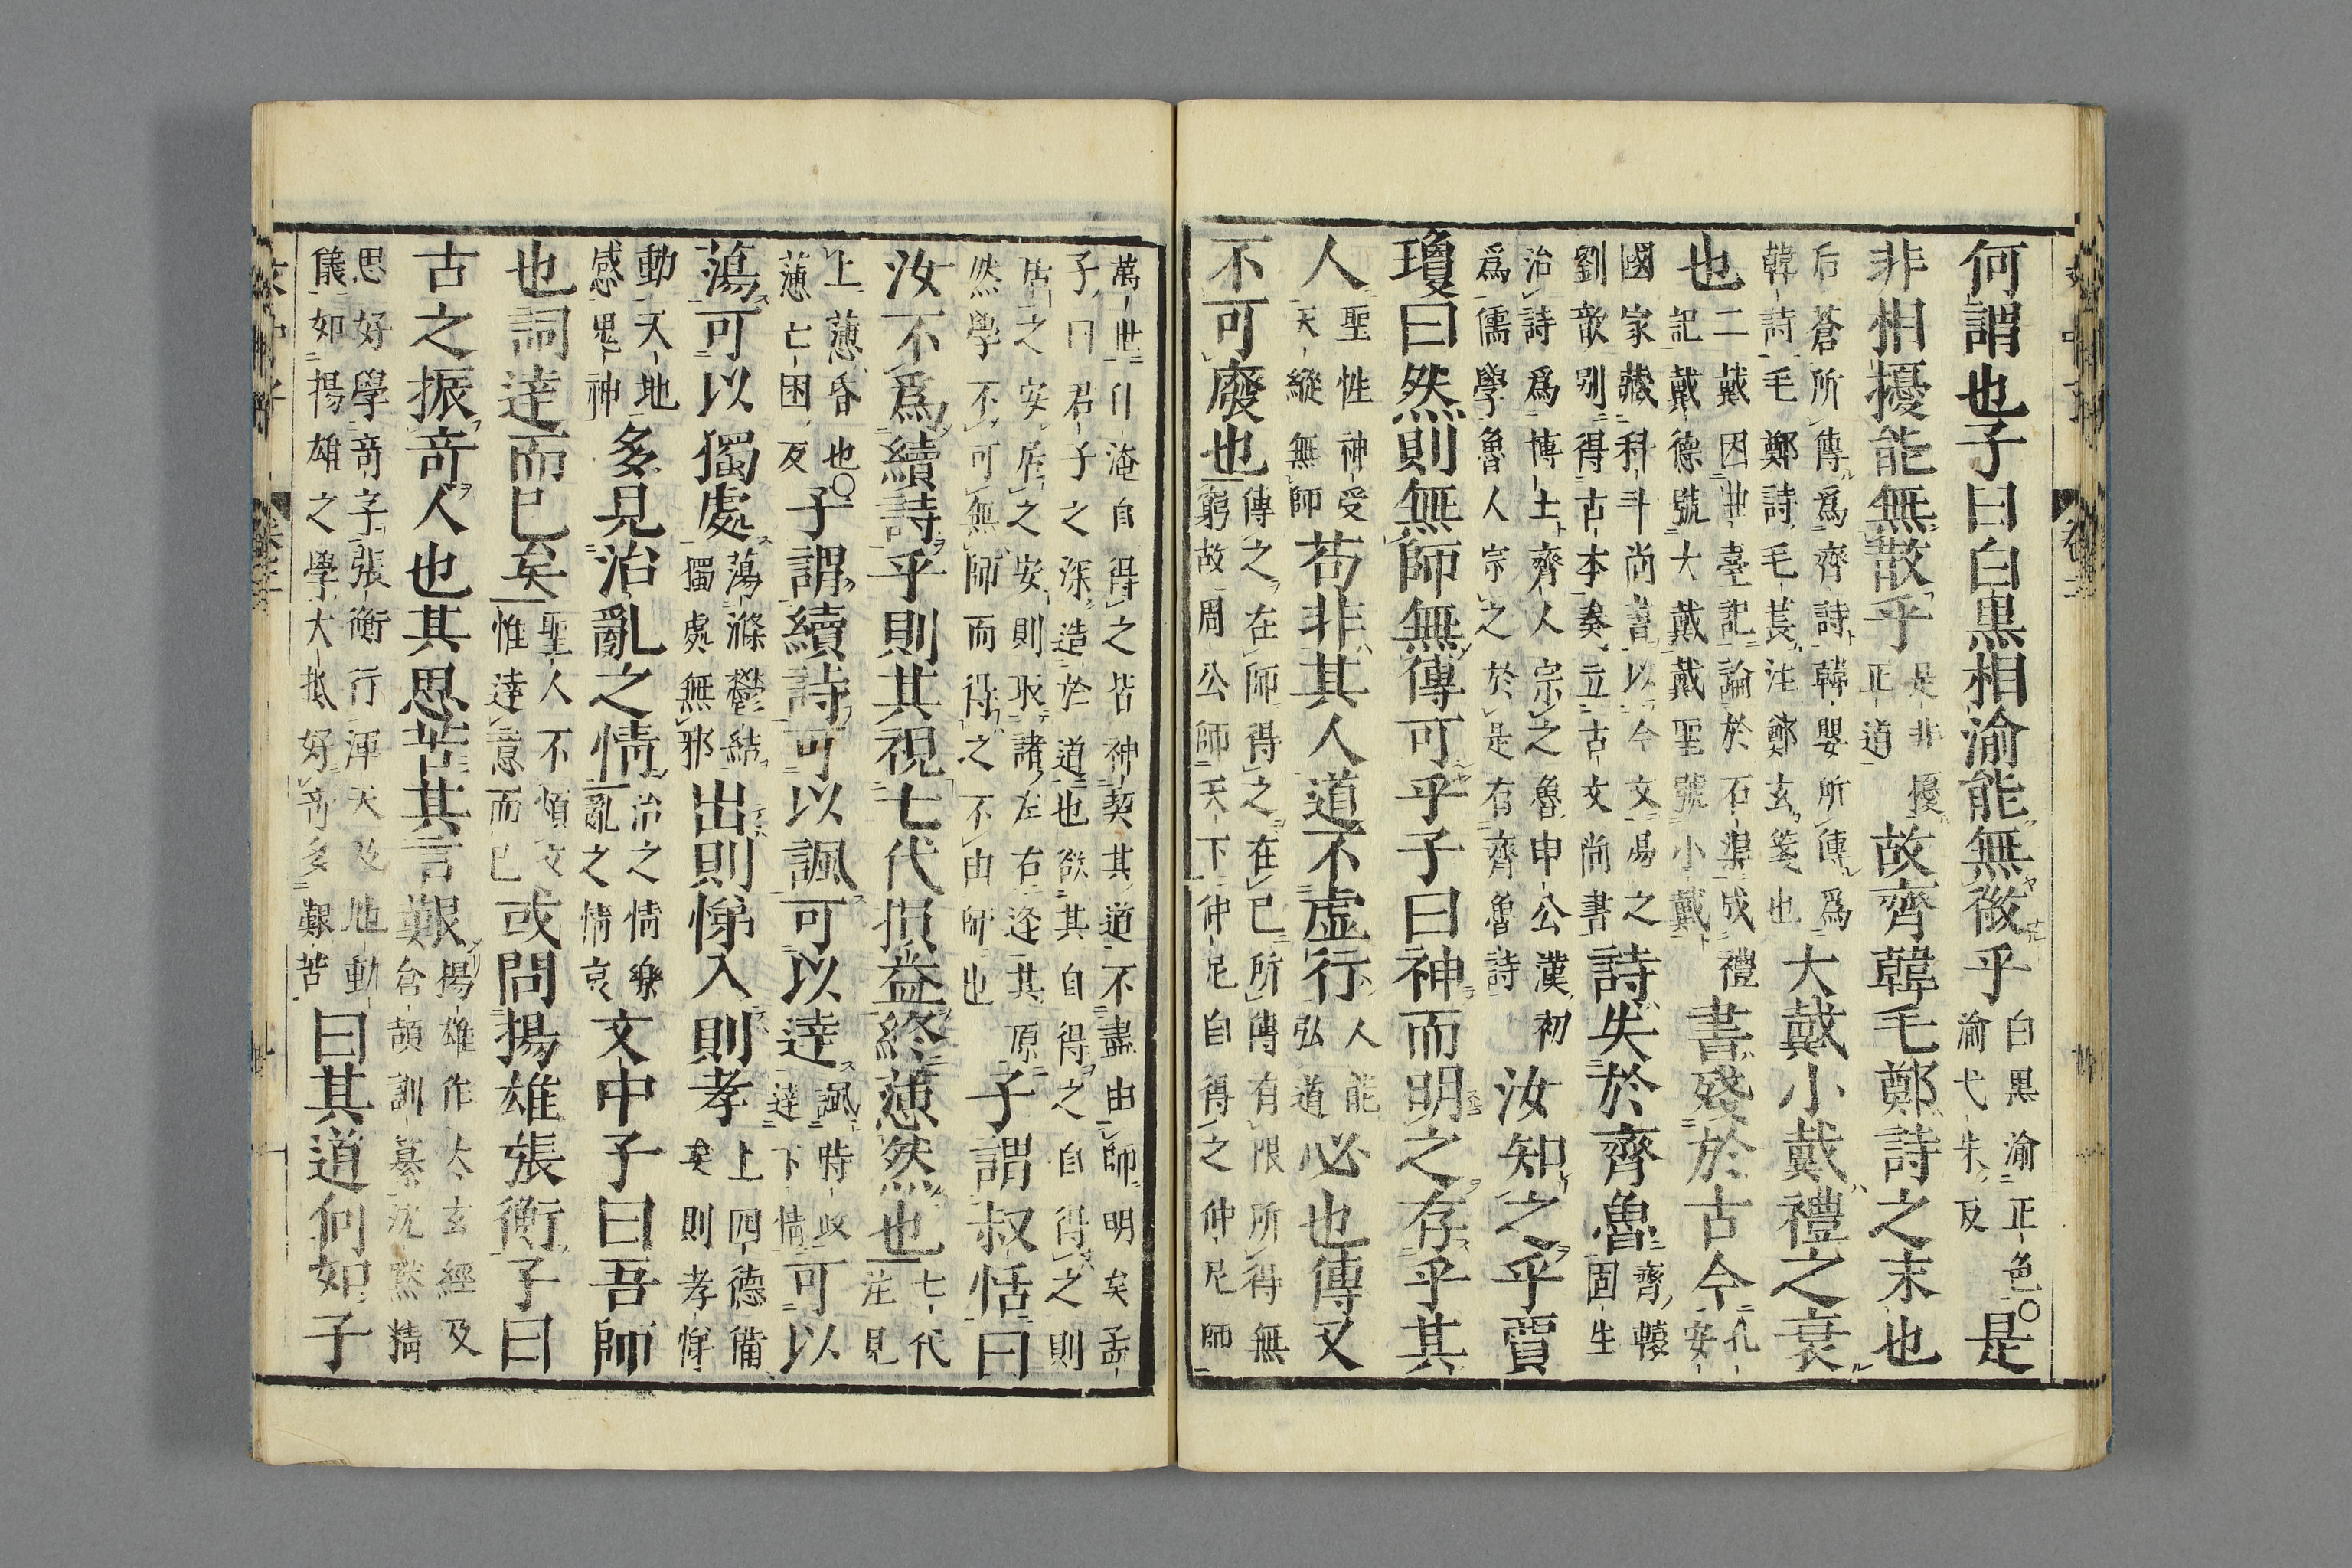 何謂也子曰白黒相渝能無微乎白黒渝正色渝弋朱反○是
非相擾能無散乎是非擾正道故齊韓毛鄭詩之末也
后蒼所傳爲齊詩韓嬰所傳爲韓詩毛鄭詩毛萇注鄭玄箋也大戴小戴禮之衰
也二戴因曲臺記論於石渠成禮記戴德號大戴戴聖號小戴書殘於古今孔安
國家藏科斗尚書以今文易之劉歆別得古本奏立古文尚書詩失於齊魯齊轅固生
治詩爲博士齊人宗之魯申公漢初爲儒學魯人宗之於是有齊魯詩汝知之乎賈
瓊曰然則無師無傳可乎子曰神而明之存乎其
人聖性神受天縱無師苟非其人道不虚行人能弘道必也傳又
不可廢也傳之在師得之在已所傳有限所得無窮故周公師天下仲尼自得之仲尼師
萬世什淹自得之皆神契其道不盡由師明矣孟子曰君子之深造於道也欲其自得之自得之則
居之安居之安則取諸左右逢其原然學不可無師而得之不由師也子謂叔恬曰
汝不爲續詩乎則其視七代損益終懣然也七代注見
上懣昏也懣亡困反○子謂續詩可以諷可以達諷時政達下情可以
蕩可以獨處蕩滌鬱結獨處無邪出則悌入則孝上四德備矣則孝悌
動天地感鬼神多見治亂之情治之情樂亂之情哀文中子曰吾師
也詞達而已矣聖人不煩文惟達意而已或問揚雄張衡子曰
古之振奇人也其思苦其言艱揚雄作太玄經及難倉頡訓纂沈黙精
思好學奇字張衡行渾天及地動儀如揚雄之學大抵好奇多艱苦曰其道何如子